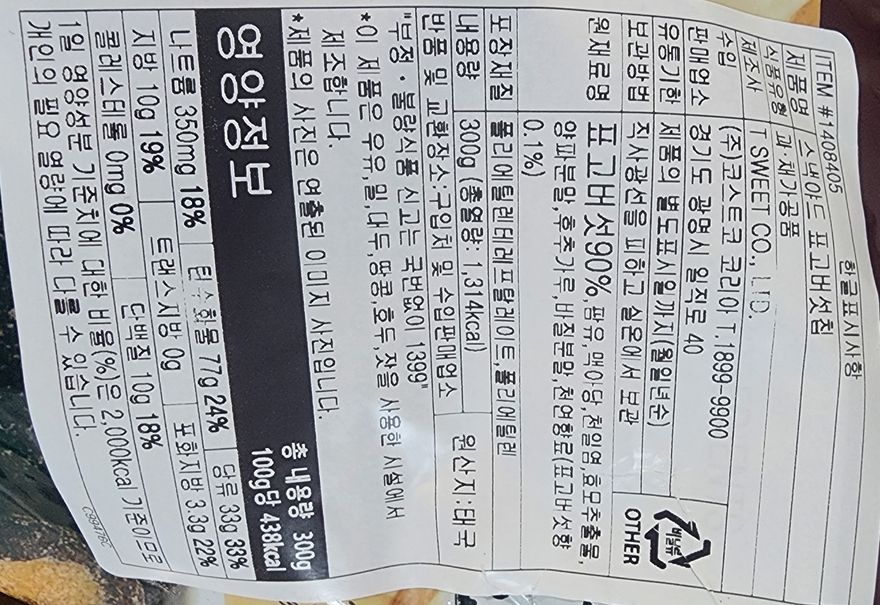 한글표시사항
ITEM # 1408405
제품명 스낵야드 표고버섯칩
식품유형 과·채가공품
제조사 T SWEET CO., LTD.
수입 (주)코스트코 코리아 T.1899-9900
판매업소 경기도 광명시 일직로 40
유통기한 제품의 별도표시일까지(월일년순)
보관방법 직사광선을 피하고 실온에서 보관
비닐류
OTHER
원재료명 표고버섯90%,팜유,맥아당,천일염,효모추출물,
양파분말,후추가루,바질분말,천연향료(표고버섯향
0.1%)
포장재질 폴리에틸렌테레프탈레이트,폴리에틸렌
내용량 300g (총열량: 1,314kcal) 원산지:태국
반품 및 교환장소:구입처 및 수입판매업소
"부정·불량식품 신고는 국번없이 1399"
*이 제품은 우유,밀,대두,땅콩,호두,잣을 사용한 시설에서
제조합니다.
*제품의 사진은 연출된 이미지 사진입니다.
영양정보 총 내용량 300g
100g당 438kcal
나트륨 350mg 18% 탄수화물 77g 24% 당류 33g 33%
지방 10g 19% 트랜스지방 0g 포화지방 3.3g 22%
콜레스테롤 0mg 0% 단백질 10g 18%
1일 영양성분 기준치에 대한 비율(%)은 2,000kcal 기준이므로
개인의 필요 열량에 따라 다를 수 있습니다.